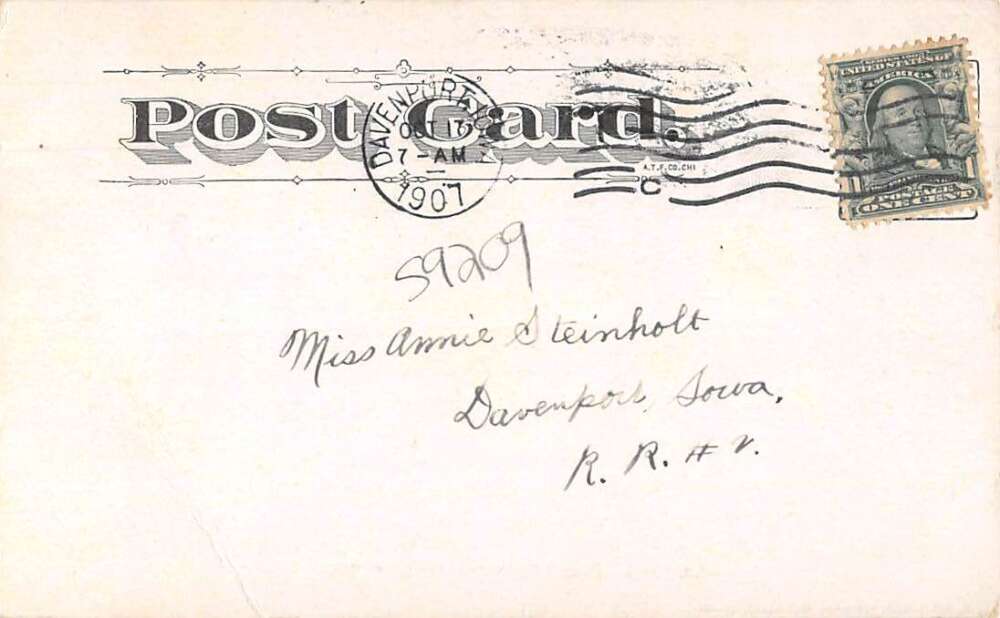 Post Card.
DAVENPORT, IOWA
OCT 17
7-AM
1907
C
A.T.F.CO.CHI
UNITED STATES OF
AMERICA
POSTAGE
ONE CENT
59209
Miss Annie Steinholt
Davenport, Iowa,
R. R. # 2.